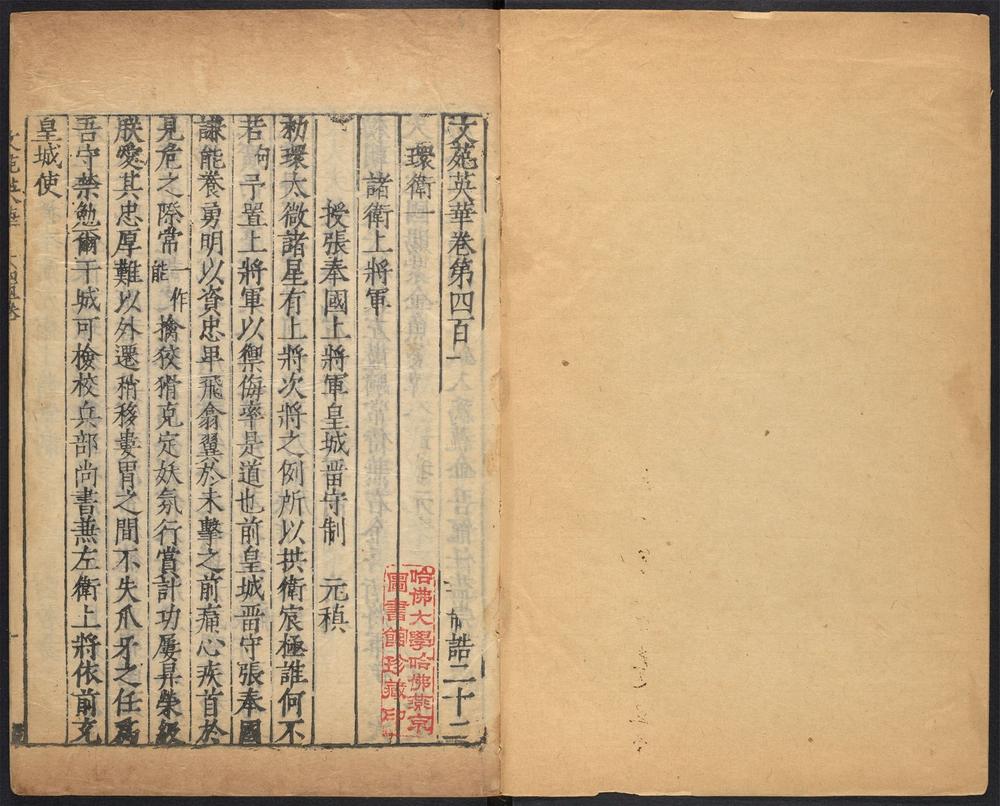 文苑英華卷第四百一
制誥二十二
環衛一
諸衛上將軍
授張奉國上將軍皇城畱守制 元稹
勑環太微諸星有上將次將之例所以拱衛宸極誰何不
若朐予置上將軍以禦侮率是道也前皇城畱守張奉國
謙能養勇明以資忠卑飛翕翼於未擊之前痛心疾首於
見危之際常一作能擒狡猾克定妖氛行賞計功屢昇榮級
朕愛其忠厚難以外遷稍移婁胃之間不失爪牙之任爲
吾守禁勉爾干城可檢校兵部尚書兼左衛上將依前充
皇城使
哈佛大學哈佛燕京
圖書館珍藏印